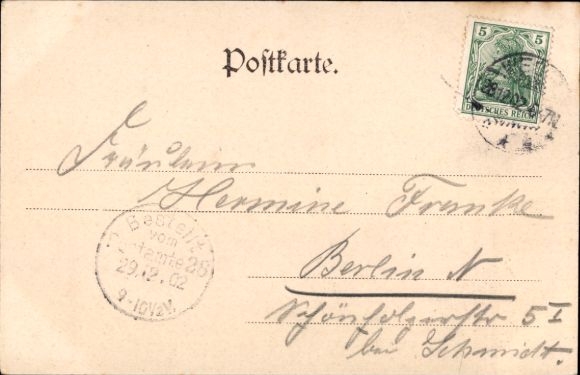 Postkarte.
5 5
DEUTSCHES REICH
28.12.02
Fräulein
Hermine Franke
Berlin N
Schönholzerstr 5 I
bei Schmidt.
Bestellt
vom
Postamte 28
29.12.02
9-10½V.